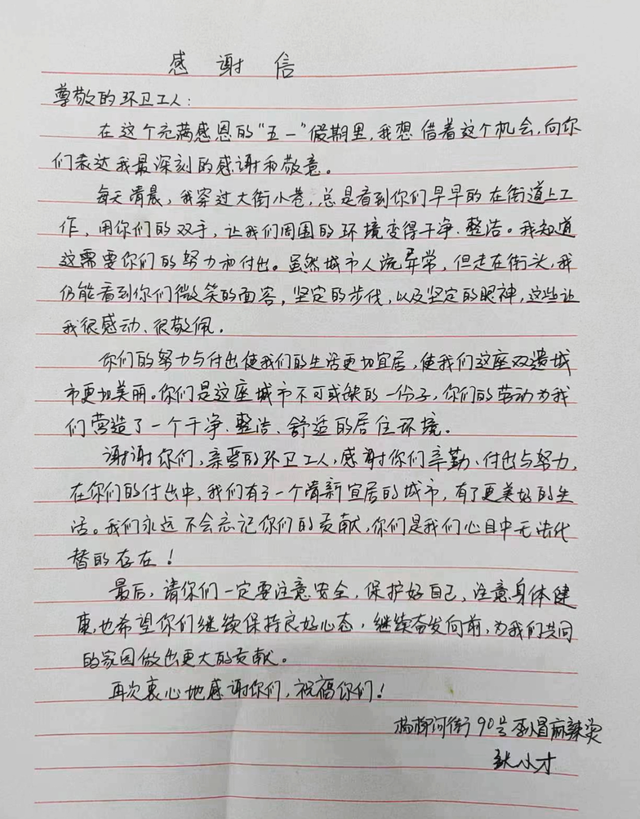 感谢信
尊敬的环卫工人：
在这个充满感恩的“五一”假期里，我想借着这个机会，向你
们表达我最深刻的感谢和敬意。
每天清晨，我穿过大街小巷，总是看到你们早早的在街道上工
作，用你们的双手，让我们周围的环境变得干净、整洁。我知道
这需要你们的努力和付出。虽然城市人流异常，但走在街头，我
仍能看到你们微笑的面容，坚定的步伐，以及坚定的眼神，这些让
我很感动、很敬佩。
你们的努力与付出使我们的生活更加宜居，使我们这座双遗城
市更加美丽。你们是这座城市不可或缺的一份子，你们的劳动为我
们营造了一个干净、整洁、舒适的居住环境。
谢谢你们，亲爱的环卫工人，感谢你们辛勤、付出与努力，
在你们的付出中，我们有了一个清新宜居的城市，有了更美好的生
活。我们永远不会忘记你们的贡献，你们是我们心目中无法代
替的存在！
最后，请你们一定要注意安全，保护好自己，注意身体健
康，也希望你们继续保持良好心态，继续奋发向前，为我们共同
的家园做出更大的贡献。
再次衷心地感谢你们，祝福你们！
杨柳河街90号 冒麻辣烫
张小才